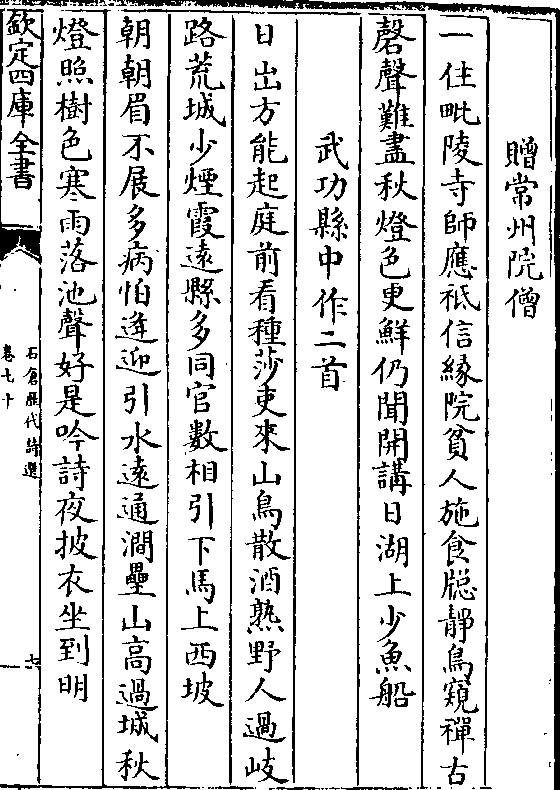 贈常州院僧
一住毗陵寺師應祇信緣院貧人施食牕靜鳥窺禪古
磬聲難盡秋燈色更鮮仍聞開講日湖上少魚船
武功縣中作二首
日出方能起庭前看種莎吏來山鳥散酒熟野人過岐
路荒城少煙霞遠縣多同官數相引下馬上西坡
朝朝眉不展多病怕逢迎引水遠通澗壘山高過城秋
燈照樹色寒雨落池聲好是吟詩夜披衣坐到明
欽定四庫全書
石倉歷代詩選
卷七十